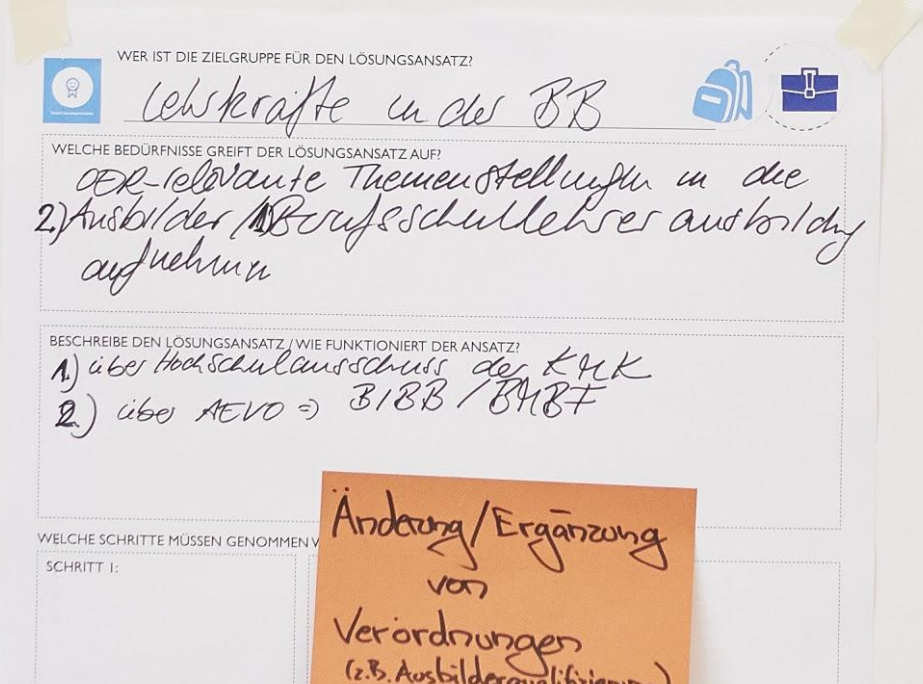 WER IST DIE ZIELGRUPPE FÜR DEN LÖSUNGSANSATZ?
Lehrkräfte in der BB
WELCHE BEDÜRFNISSE GREIFT DER LÖSUNGSANSATZ AUF?
OER-relevante Themenstellungen in die
2.) Ausbilder / 1) Berufsschullehrerausbildung
aufnehmen
BESCHREIBE DEN LÖSUNGSANSATZ / WIE FUNKTIONIERT DER ANSATZ?
1.) über Hochschulausschuss der KMK
2.) über AEVO => BIBB / BMBF
Änderung/Ergänzung
von
Verordnungen
(z.B. Ausbilderqualifizierung)
WELCHE SCHRITTE MÜSSEN GENOMMEN
SCHRITT 1: